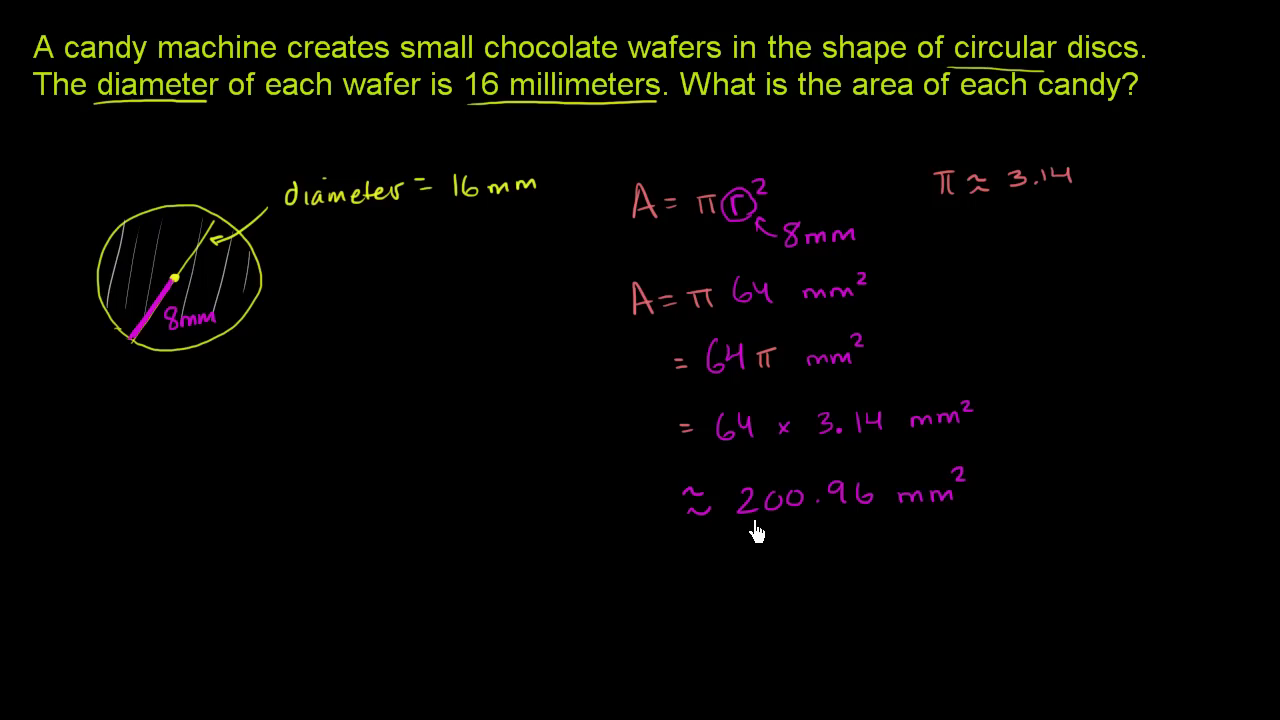 A candy machine creates small chocolate wafers in the shape of circular discs.
The diameter of each wafer is 16 millimeters. What is the area of each candy?
diameter = 16 mm
8mm
A = π r²
8mm
π ≈ 3.14
A = π 64 mm²
= 64 π mm²
= 64 × 3.14 mm²
≈ 200.96 mm²